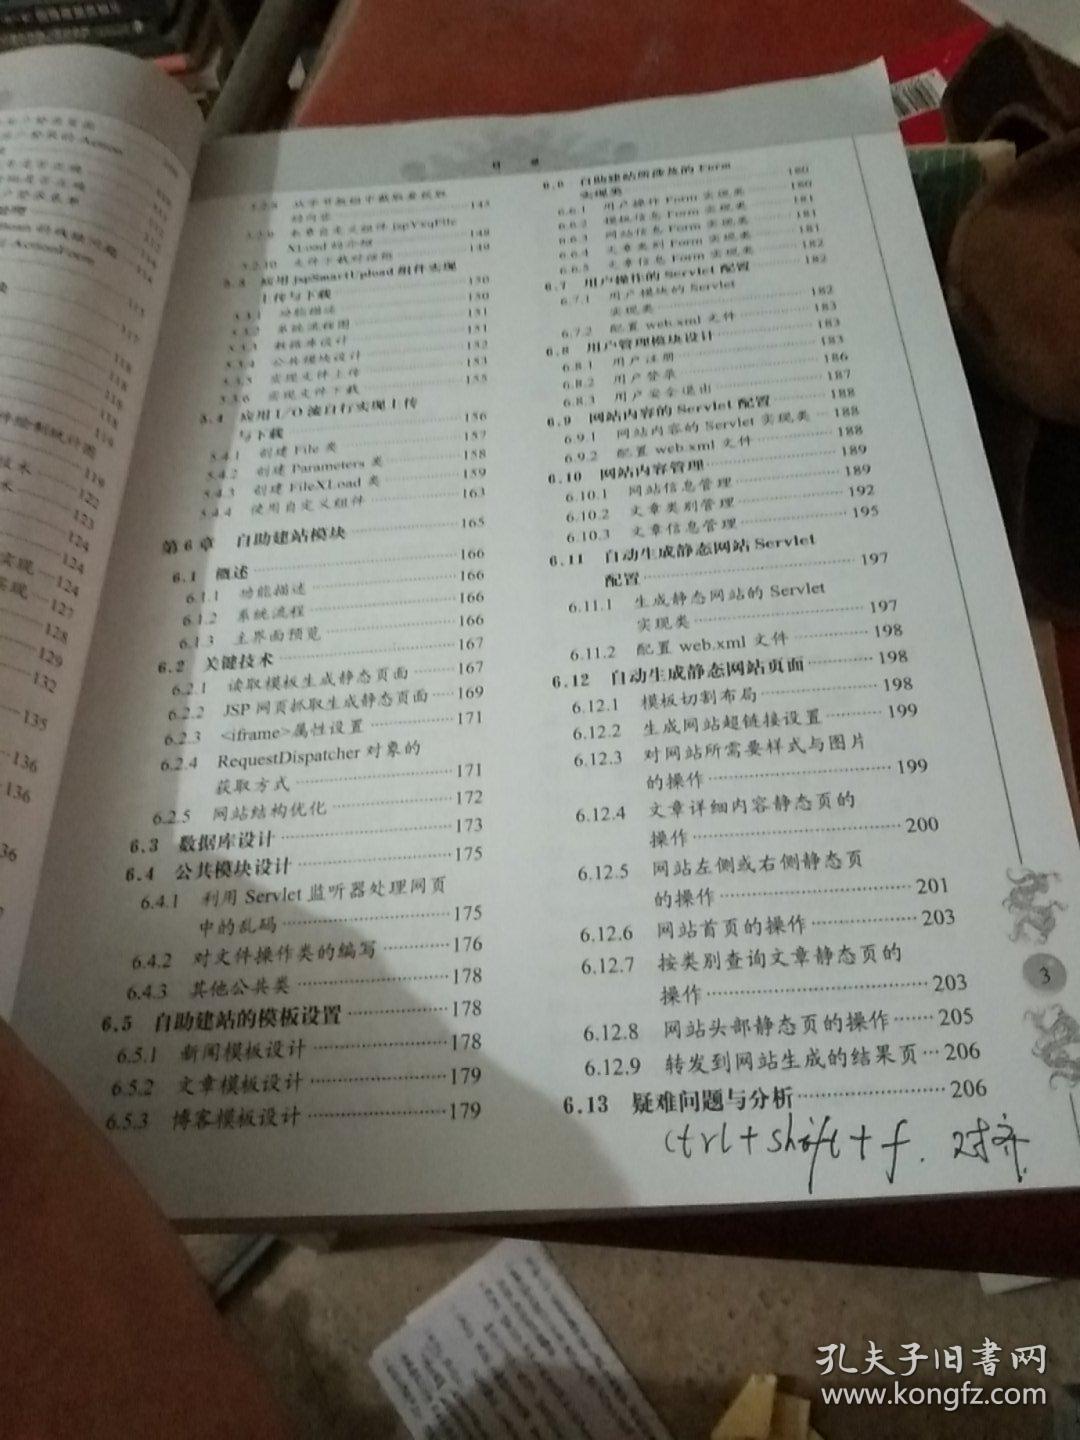 目 录
5.2.10 文件下载对话框 149
5.3 应用 jspSmartUpload 组件实现
上传与下载 150
5.3.1 功能描述 150
5.3.2 系统流程图 151
5.3.3 数据库设计 151
5.3.4 公共模块设计 152
5.3.5 实现文件上传 153
5.3.6 实现文件下载 155
5.4 应用 I/O 流自行实现上传
与下载 156
5.4.1 创建 File 类 157
5.4.2 创建 Parameters 类 158
5.4.3 创建 FileXLoad 类 159
5.4.4 使用自定义组件 163
第 6 章 自助建站模块 165
6.1 概述 166
6.1.1 功能描述 166
6.1.2 系统流程 166
6.1.3 主界面预览 166
6.2 关键技术 167
6.2.1 读取模板生成静态页面 167
6.2.2 JSP 网页抓取生成静态页面 169
6.2.3 <iframe>属性设置 171
6.2.4 RequestDispatcher 对象的
获取方式 171
6.2.5 网站结构优化 172
6.3 数据库设计 173
6.4 公共模块设计 175
6.4.1 利用 Servlet 监听器处理网页
中的乱码 175
6.4.2 对文件操作类的编写 176
6.4.3 其他公共类 178
6.5 自助建站的模板设置 178
6.5.1 新闻模板设计 178
6.5.2 文章模板设计 179
6.5.3 博客模板设计 179
6.6 自助建站所涉及的 Form
实现类 180
6.6.1 用户操作 Form 实现类 180
6.6.2 模板信息 Form 实现类 181
6.6.3 网站信息 Form 实现类 181
6.6.4 文章类别 Form 实现类 181
6.6.5 文章信息 Form 实现类 182
6.7 用户操作的 Servlet 配置 182
6.7.1 用户模块的 Servlet
实现类 182
6.7.2 配置 web.xml 文件 183
6.8 用户管理模块设计 183
6.8.1 用户注册 183
6.8.2 用户登录 186
6.8.3 用户安全退出 187
6.9 网站内容的 Servlet 配置 188
6.9.1 网站内容的 Servlet 实现类 188
6.9.2 配置 web.xml 文件 188
6.10 网站内容管理 189
6.10.1 网站信息管理 189
6.10.2 文章类别管理 192
6.10.3 文章信息管理 195
6.11 自动生成静态网站 Servlet
配置 197
6.11.1 生成静态网站的 Servlet
实现类 197
6.11.2 配置 web.xml 文件 198
6.12 自动生成静态网站页面 198
6.12.1 模板切割布局 198
6.12.2 生成网站超链接设置 199
6.12.3 对网站所需要样式与图片
的操作 199
6.12.4 文章详细内容静态页的
操作 200
6.12.5 网站左侧或右侧静态页
的操作 201
6.12.6 网站首页的操作 203
6.12.7 按类别查询文章静态页的
操作 203
6.12.8 网站头部静态页的操作 205
6.12.9 转发到网站生成的结果页 206
6.13 疑难问题与分析 206
ctrl+shift+f. 对齐.
3
孔夫子旧書网
www.kongfz.com